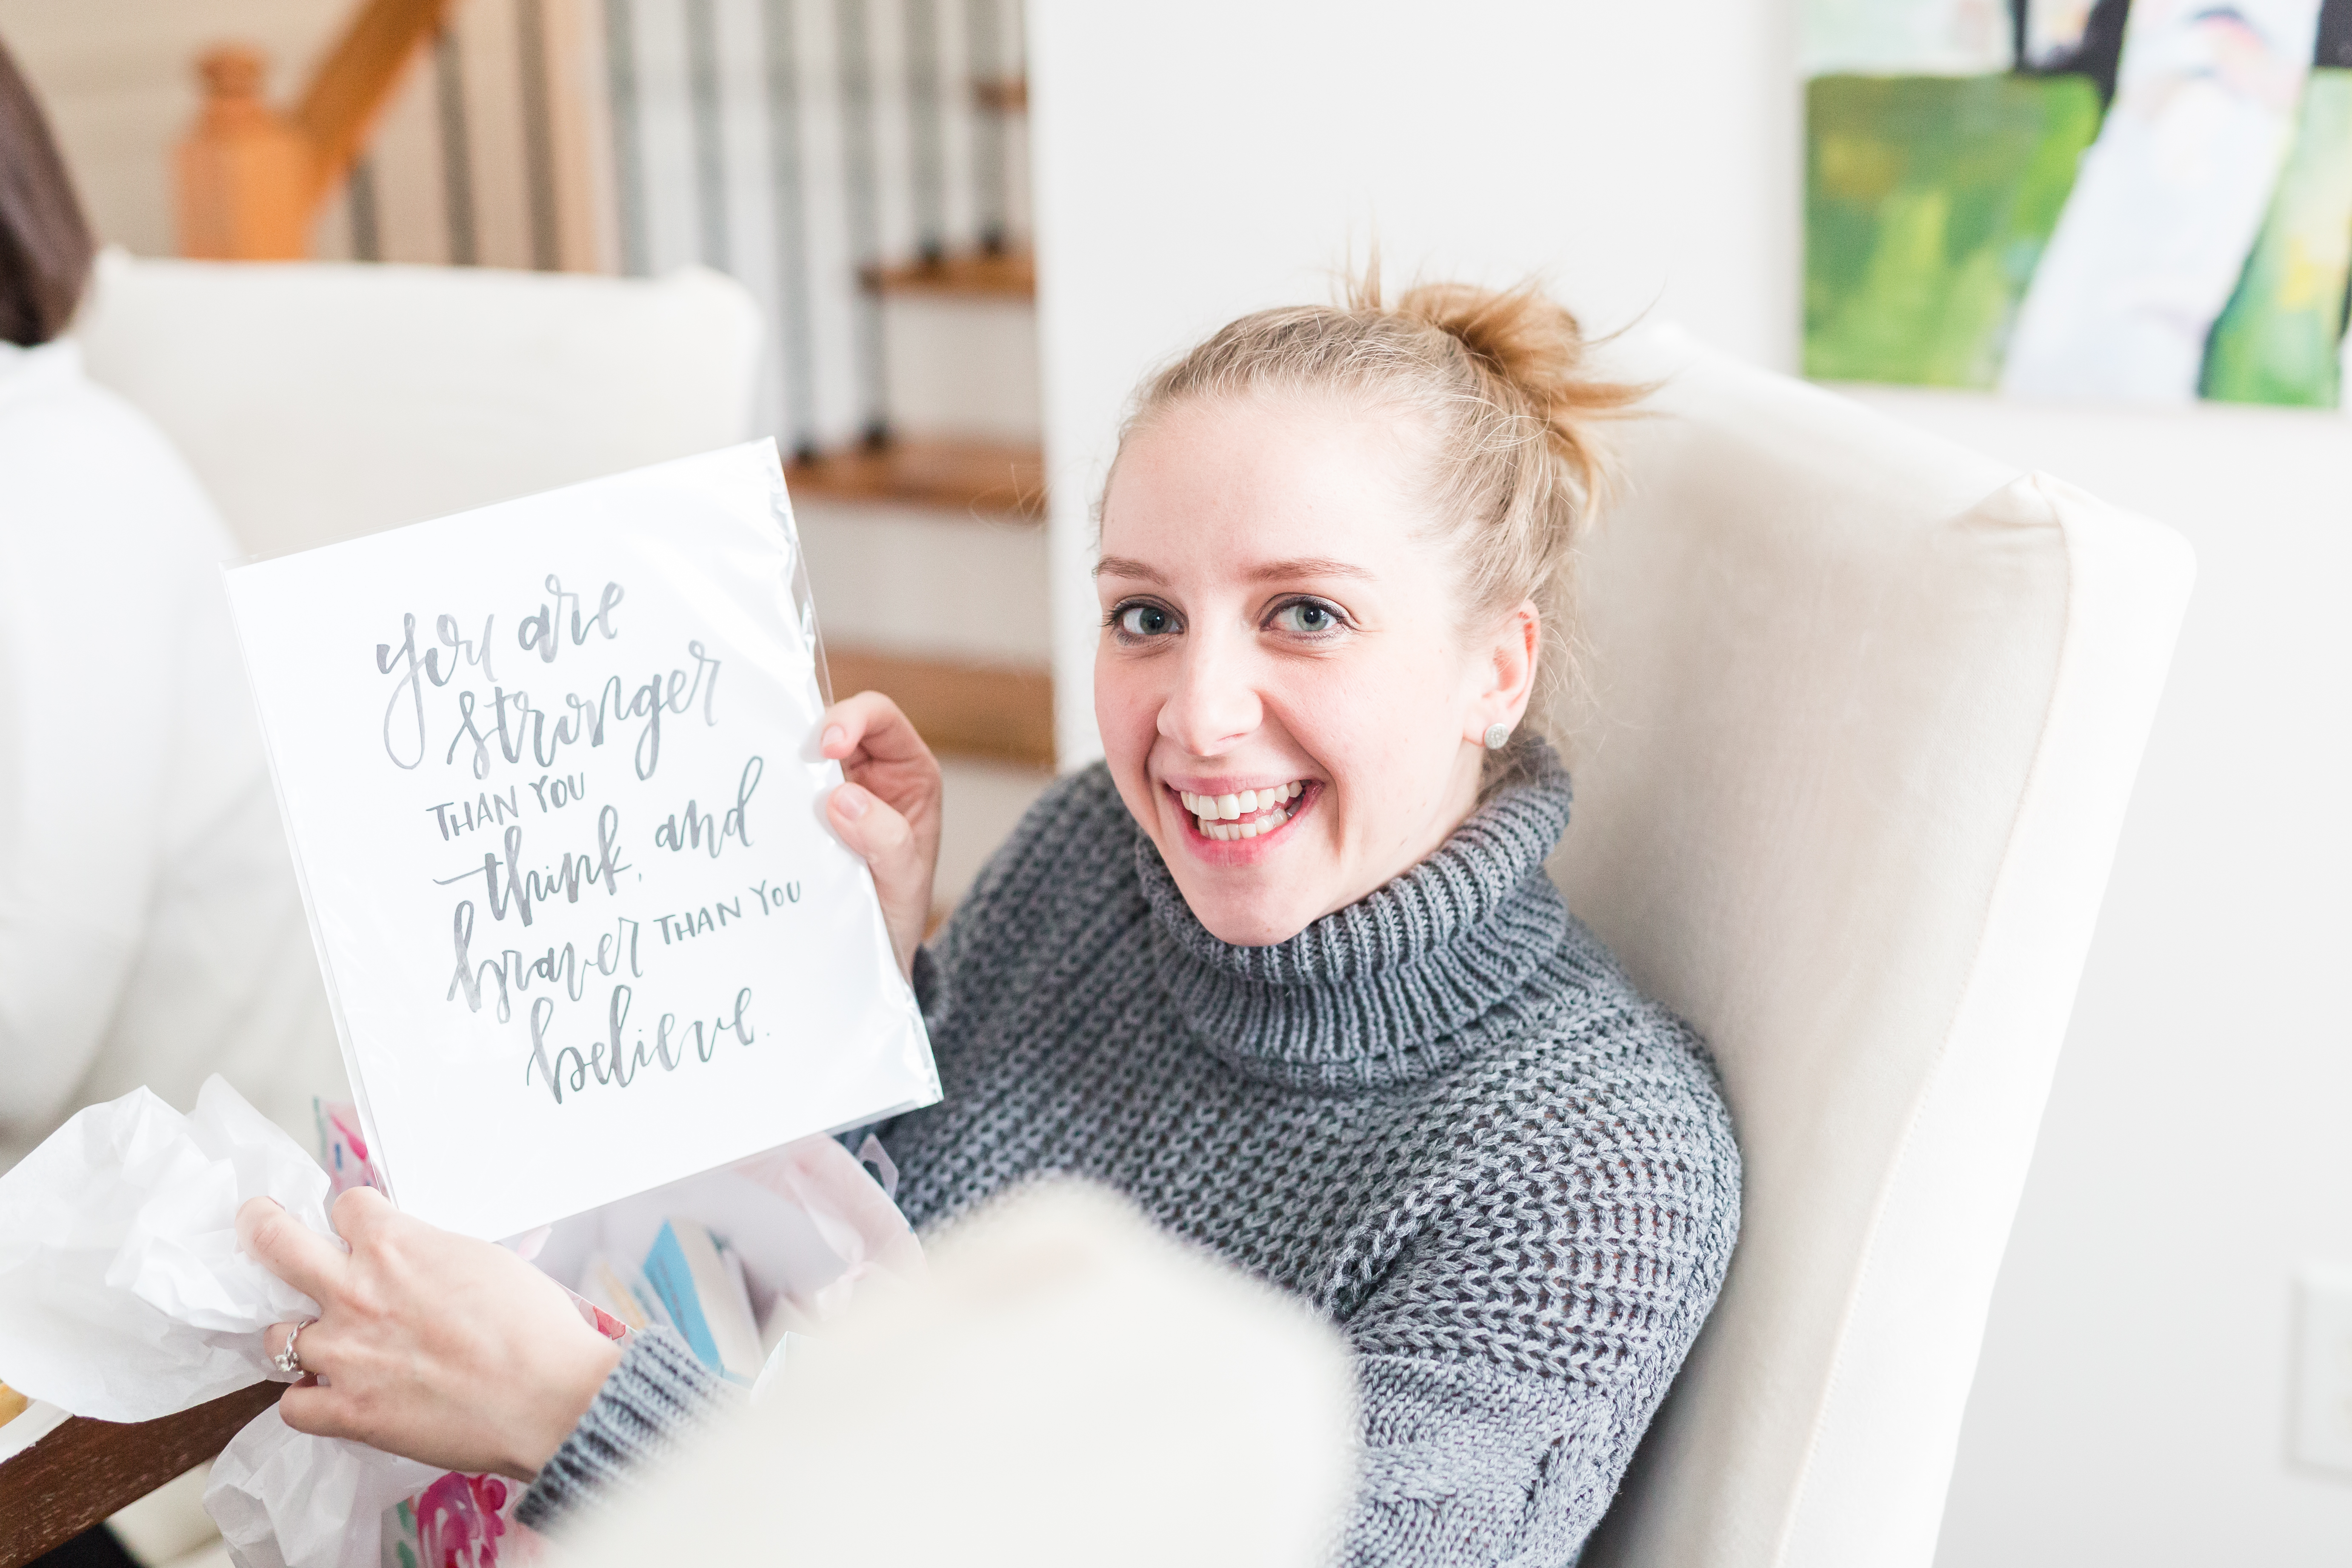 you are
stronger
THAN YOU
think, and
braver THAN YOU
believe.